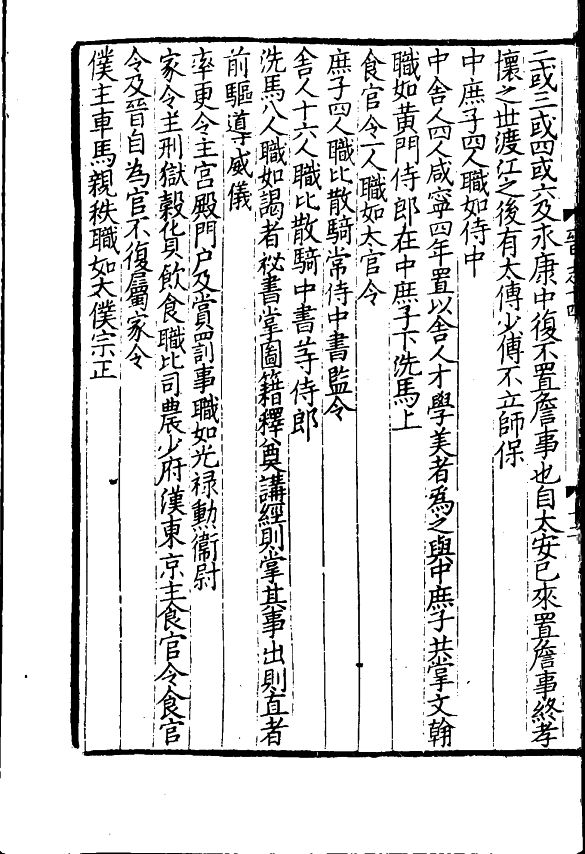 二或三或四或六及永康中復不置詹事也自太安已來置詹事終孝
懷之世渡江之後有太傅少傅不立師保
中庶子四人職如侍中
中舍人四人咸寧四年置以舍人才學美者爲之與中庶子共掌文翰
職如黄門侍郎在中庶子下洗馬上
食官令一人職如太官令
庶子四人職比散騎常侍中書監令
舍人十六人職比散騎中書等侍郎
洗馬八人職如謁者祕書掌圖籍釋奠講經則掌其事出則直者
前驅導威儀
率更令主宫殿門户及賞罰事職如光禄勲衞尉
家令主刑獄榖貨飲食職比司農少府漢東京主食官令食官
令及晉自為官不復屬家令
僕主車馬親秩職如太僕宗正